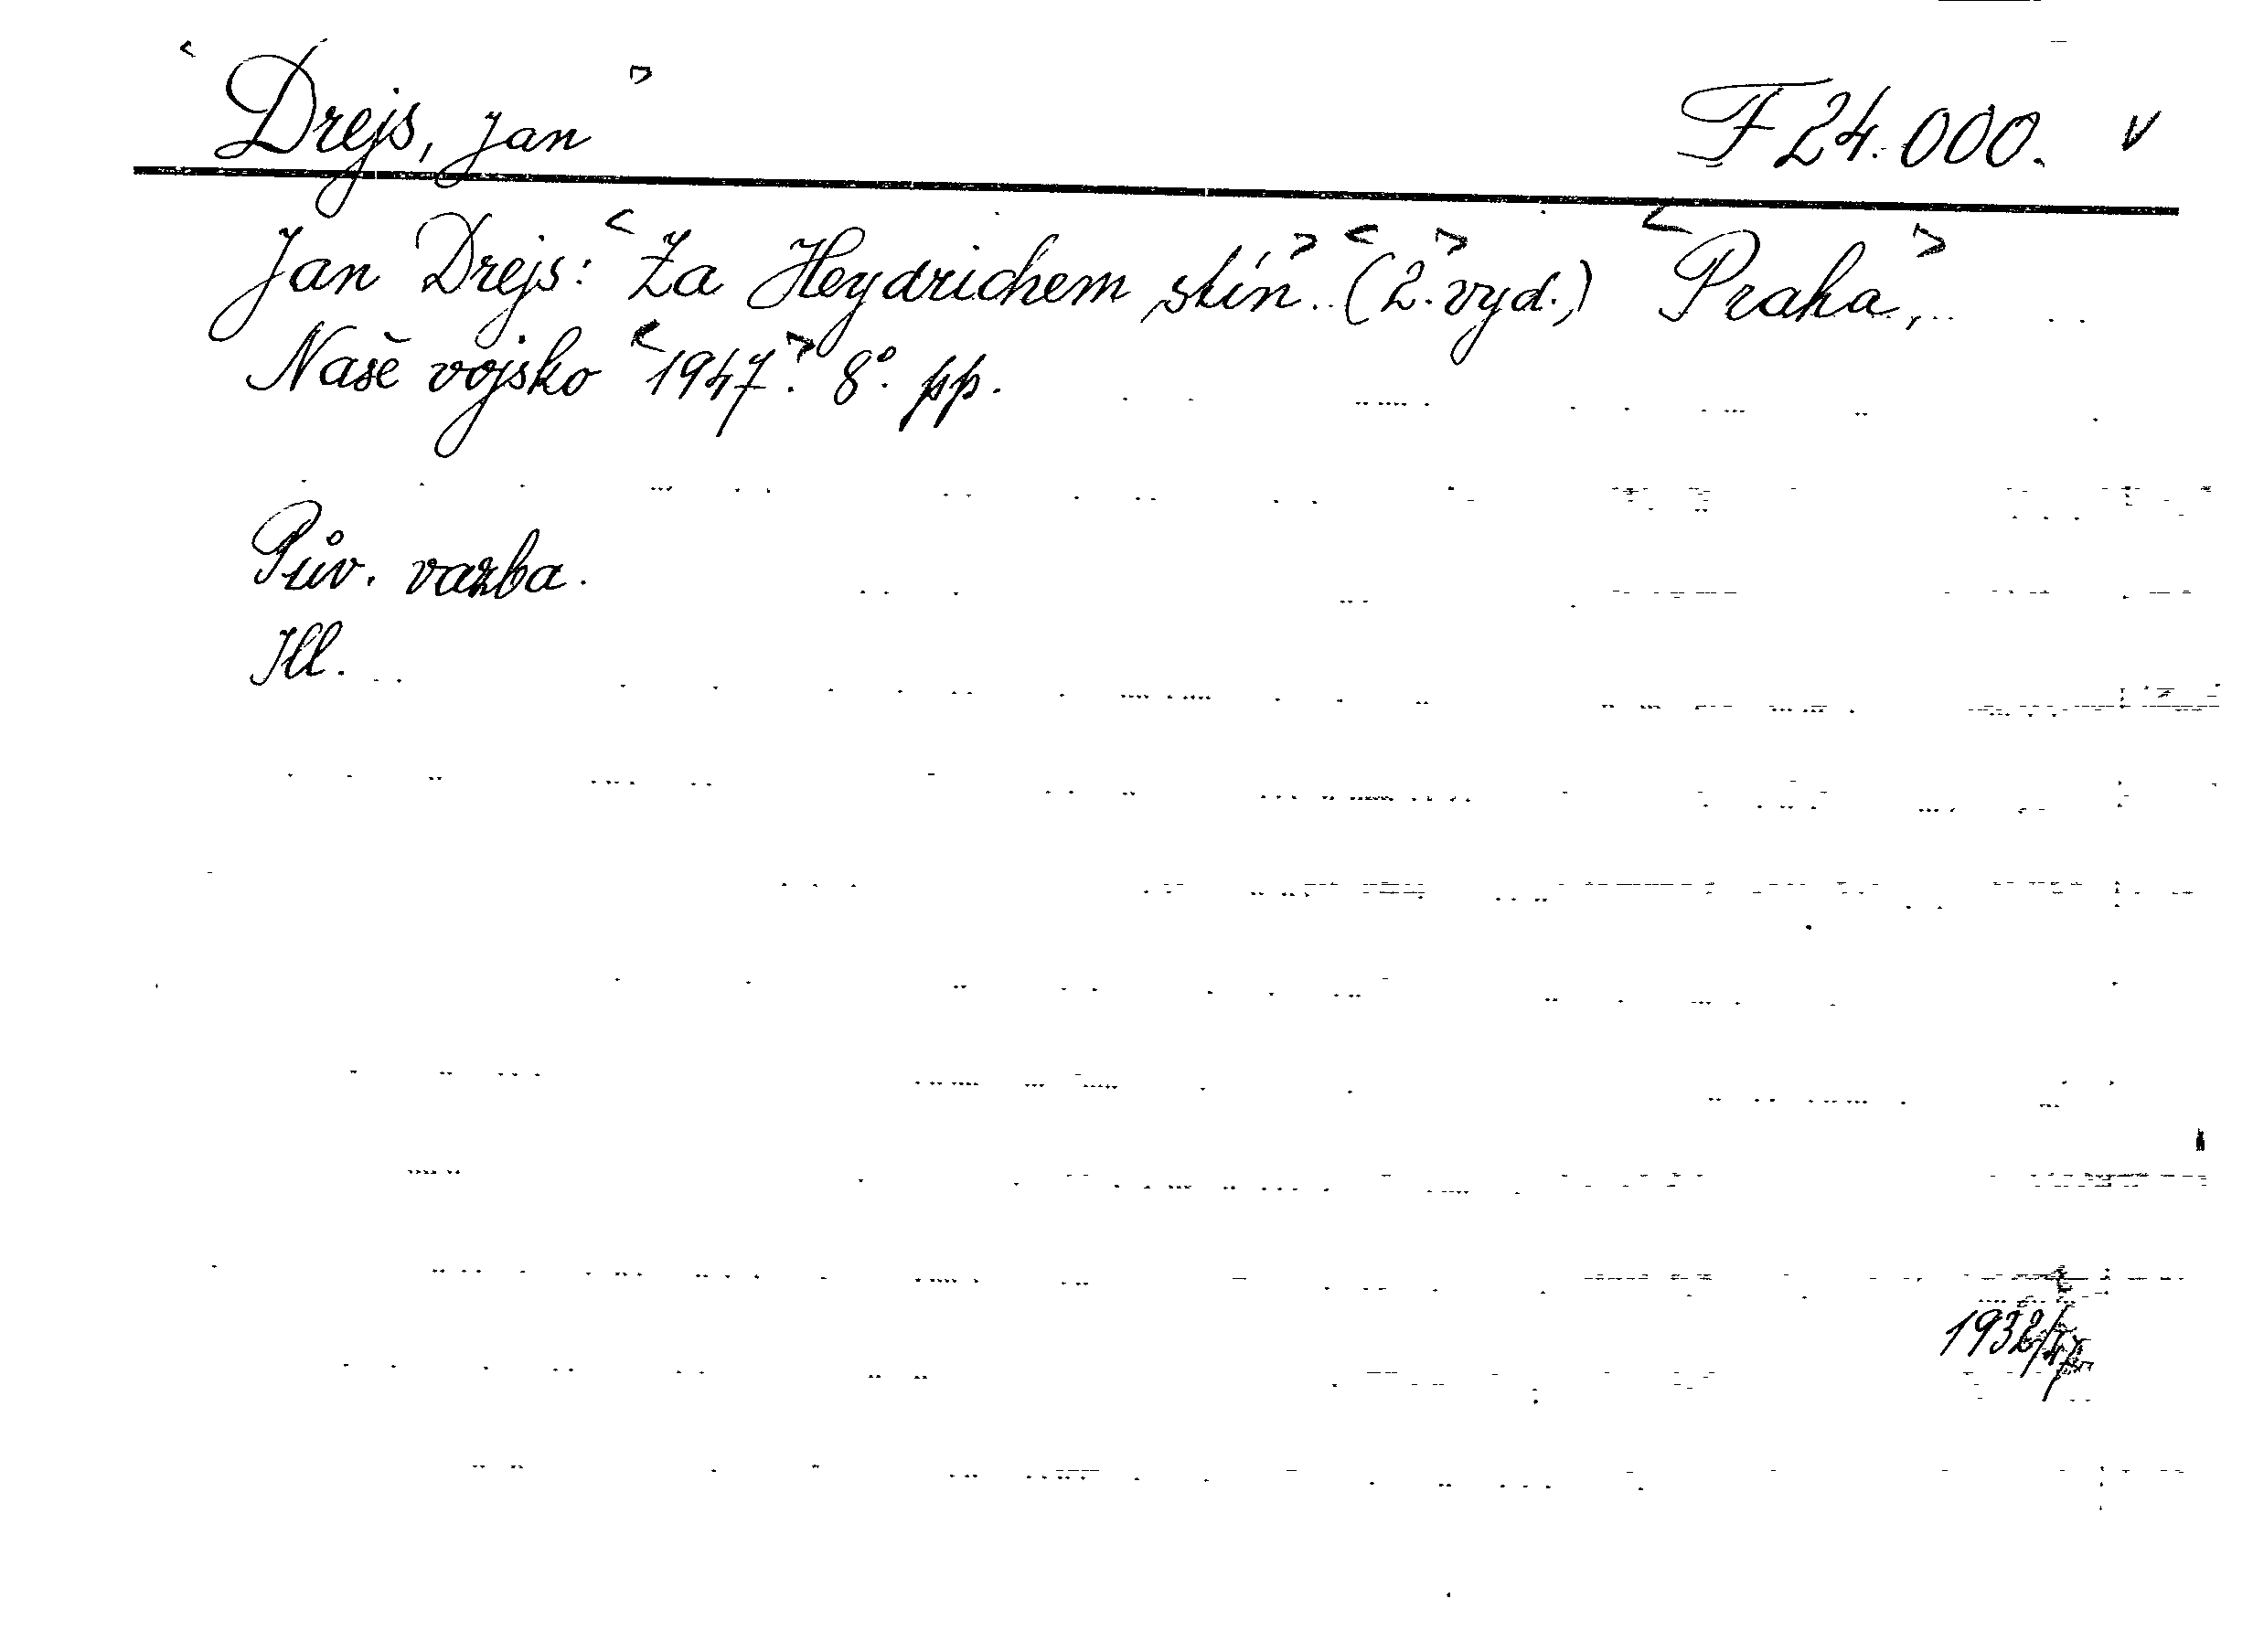 <Drejs, Jan> F 24.000. v
Jan Drejs: <Za Heydrichem stín>. (<2.> vyd.) <Praha>,
Naše vojsko <1947>. 8°. pp.
Pův. vazba.
Ill.